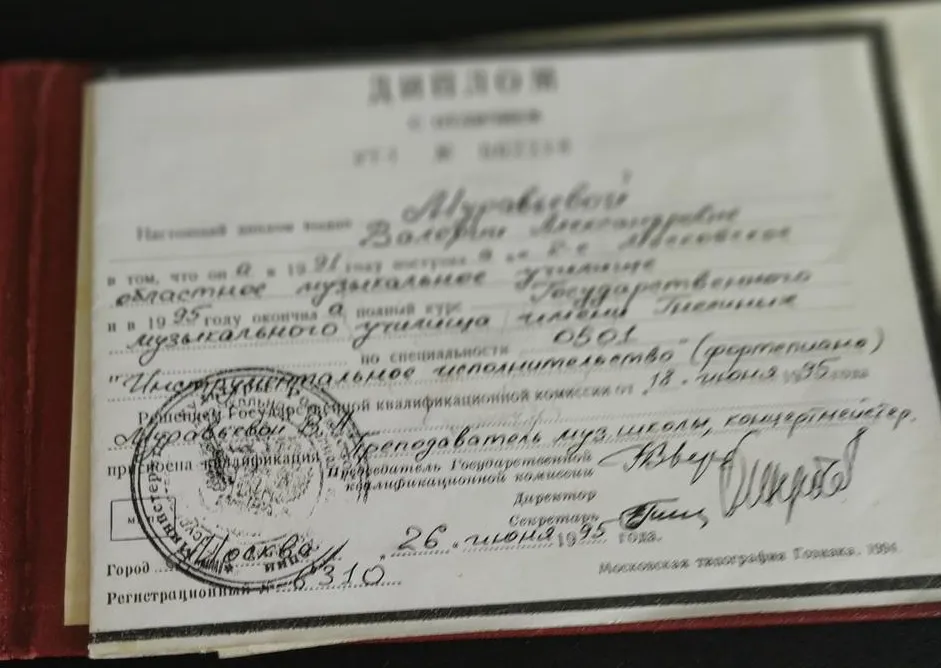 ДИПЛОМ
с отличием
Настоящий диплом выдан Муравьевой
Валерии Александровне
в том, что он а в 1991 году поступил а в 2-е Московское
областное музыкальное училище
и в 1995 году окончил а полный курс Государственного
музыкального училища имени Гнесиных
по специальности 0501
"Инструментальное исполнительство" (фортепиано)
Решением Государственной квалификационной комиссии от 18 июня 1995 года
Муравьевой В.А.
присвоена квалификация преподаватель муз. школы, концертмейстер.
Председатель Государственной
квалификационной комиссии
Директор
Секретарь
Город Москва 26 июня 1995 года.
Регистрационный № 6310
Московская типография Гознака. 1994.